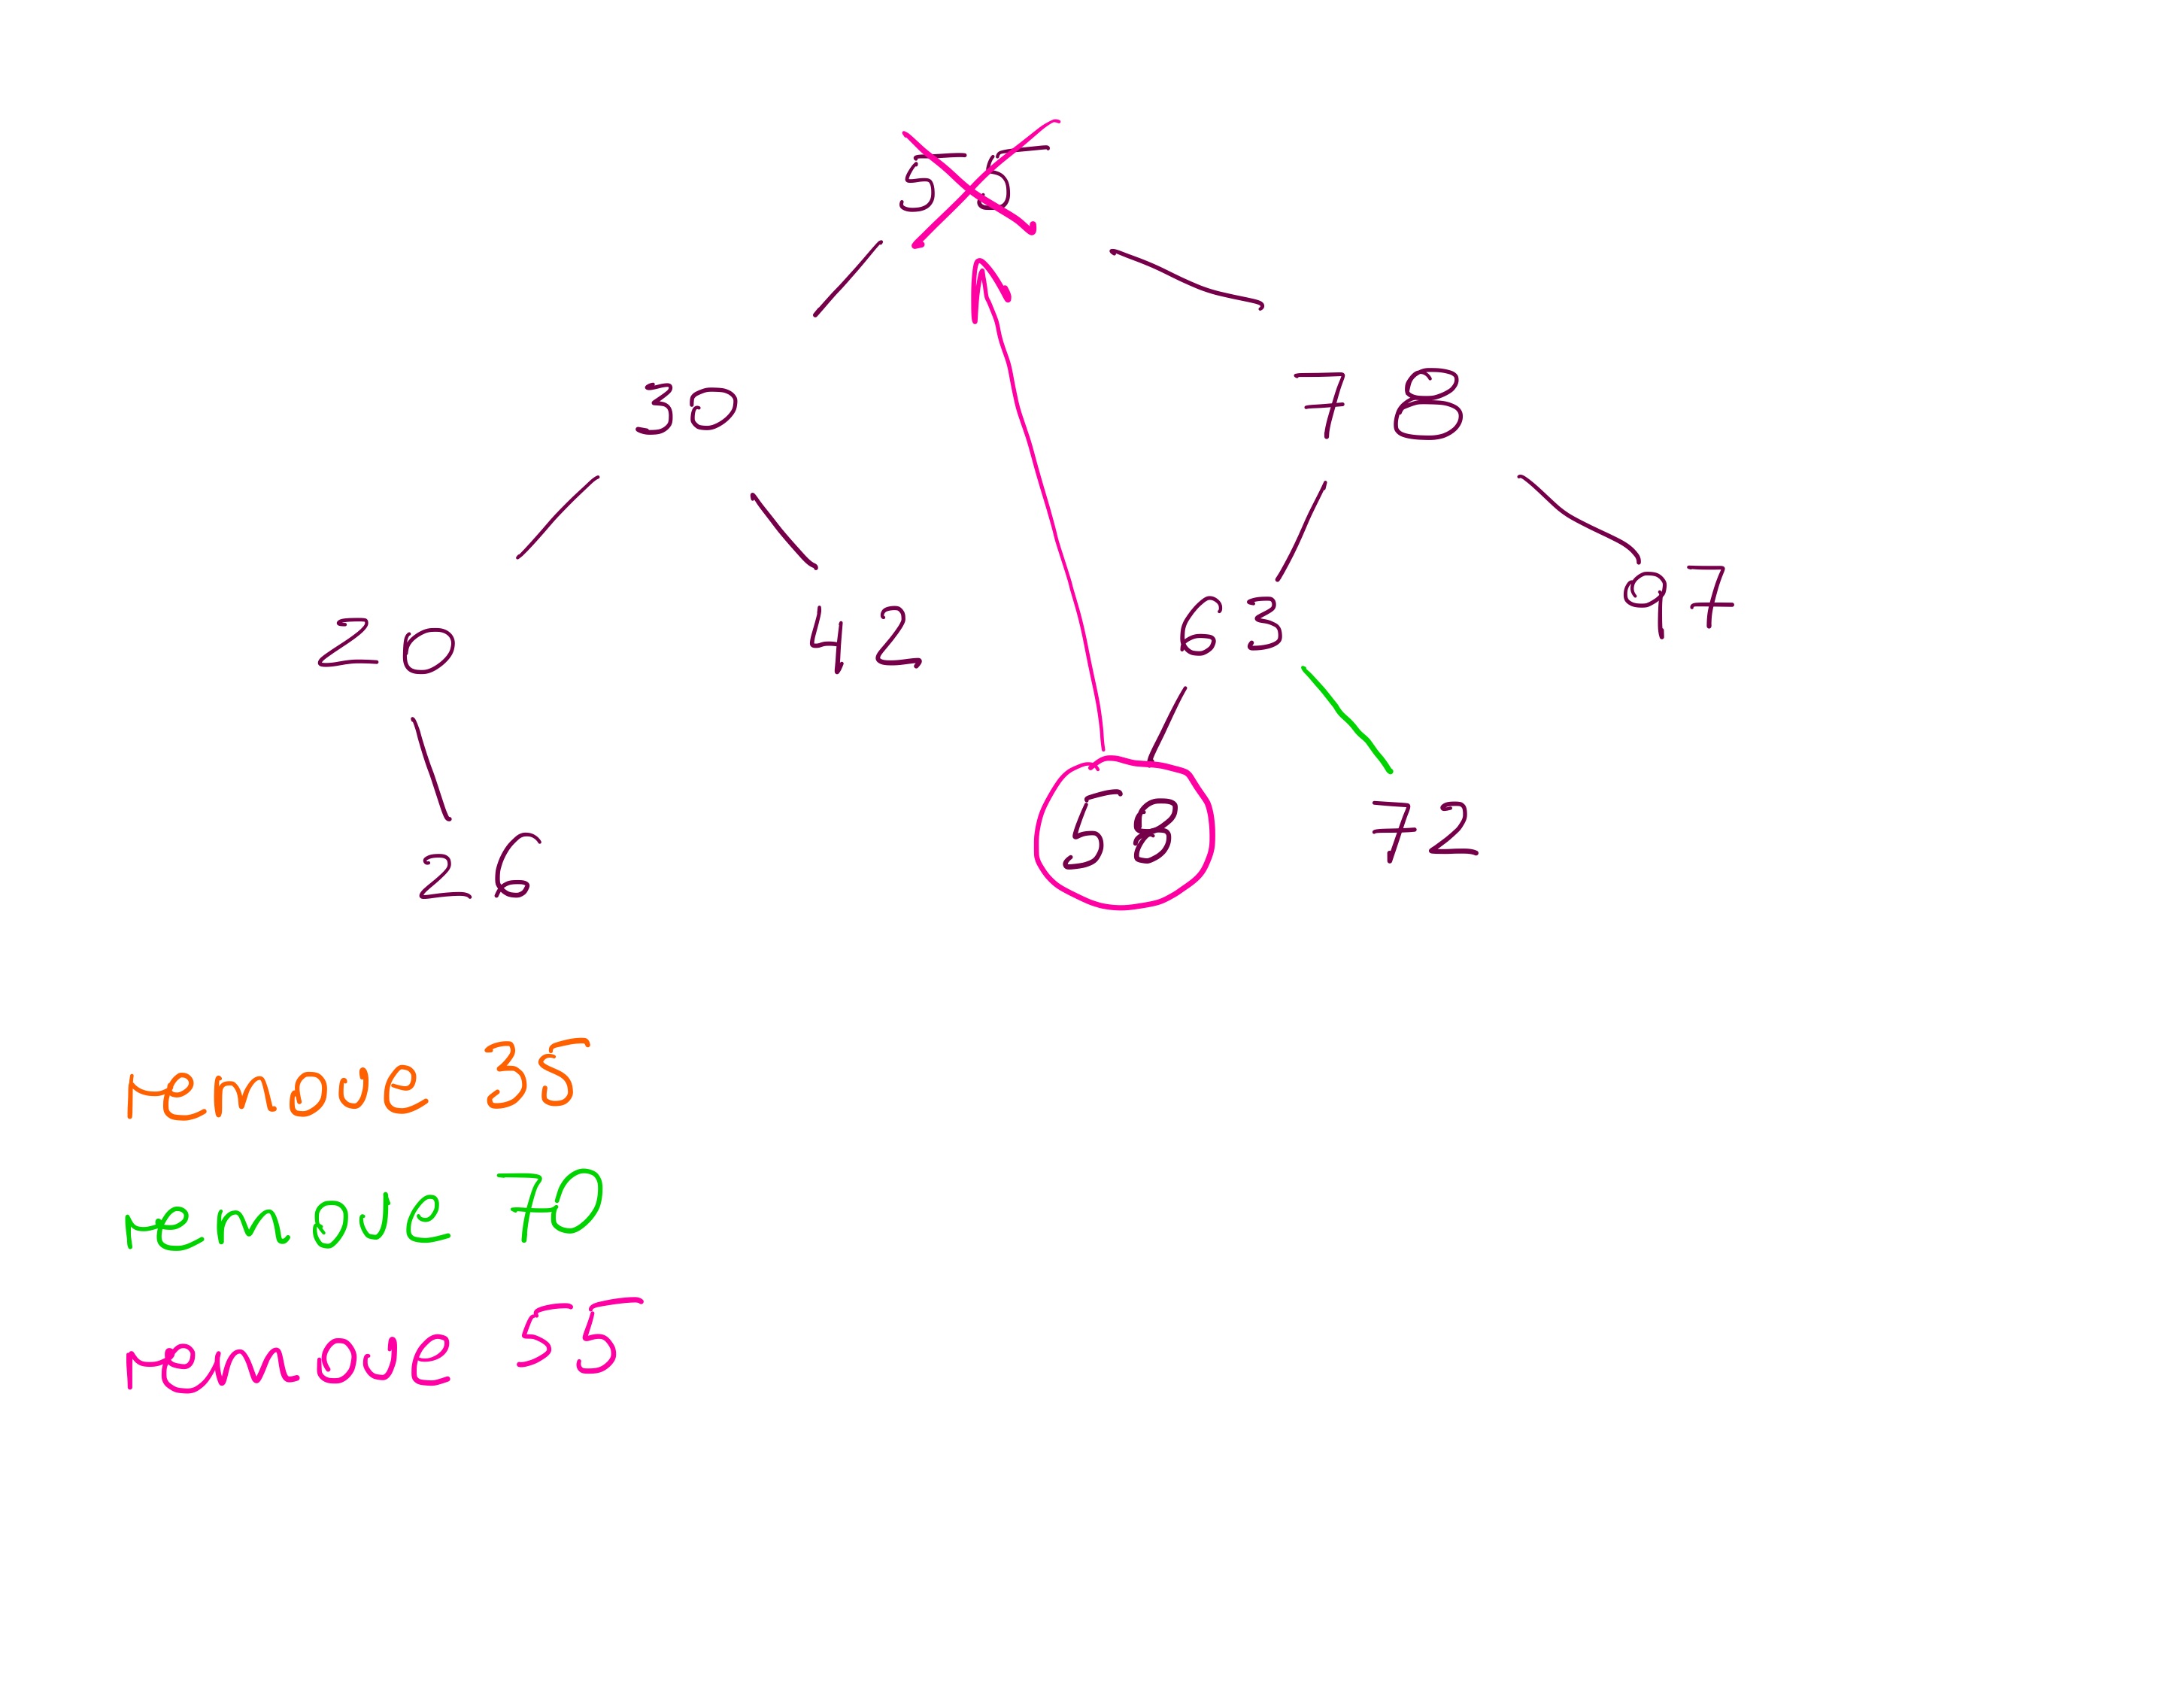 55
30 78
20 42 63 97
26 58 72
remove 35
remove 70
remove 55